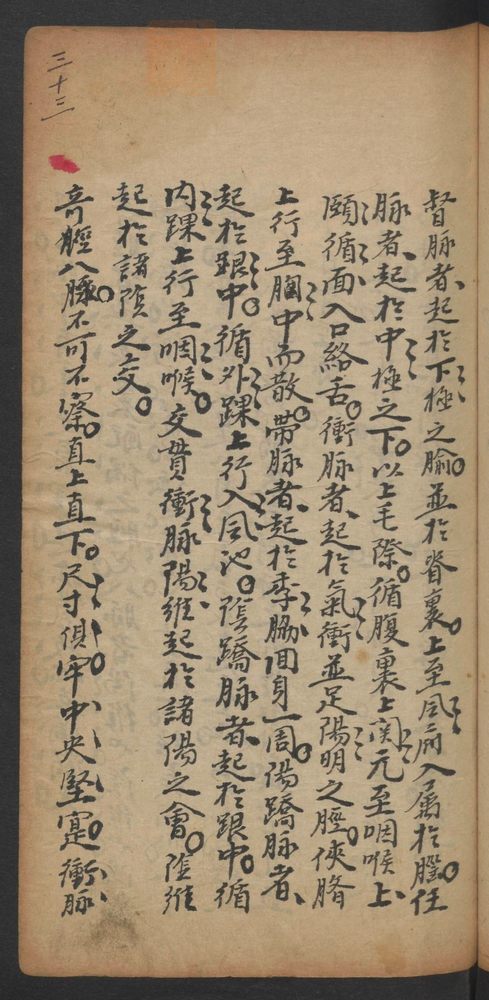 三十三
督脉者起於下極之腧並於脊裏上至風府入属於腦任
脉者起於中極之下以上毛際循腹裏上関元至咽喉上
頤循面入口絡舌衝脉者起於氣衝並足陽明之脛俠臍
上行至胸中而散帶脉者起於季脇囬身一周陽蹻脉者
起於跟中循外踝上行入風池陰蹻脉者起於跟中循
内踝上行至咽喉交貫衝脉陽維起於諸陽之會陰維
起於諸陰之交
奇經八脉不可不察直上直下尺寸俱牢中央堅寔衝脉